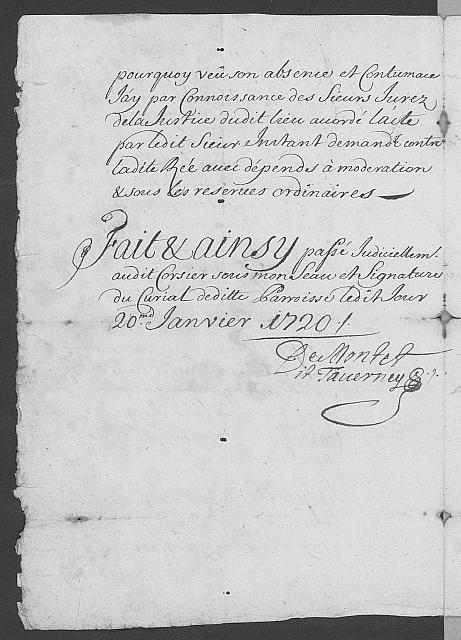 pourquoy veu son absence et Contumace
Jáy par Connoissance des Sieurs Jurez
de la Justice dudit lieu accordé l'acte
par ledit Sieur Instant demandé contre
ladite Rée avec dépends à moderation
& sous les reserves ordinaires
Fait & ainsy passé Judiciellemt.
audit Corsier sous mon Seau et Signature
du Curial de ditte Parroisse ledit Jour
20.me Janvier 1720 /.
De Montet
dt Taverney